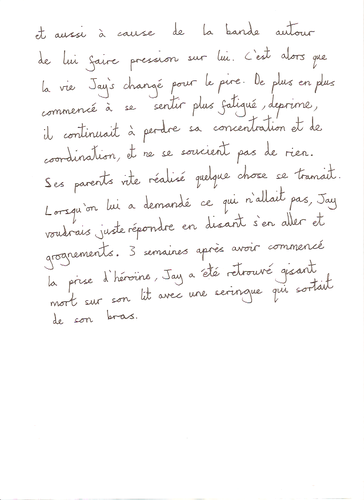 et aussi à cause de la bande autour
de lui faire pression sur lui. C'est alors que
la vie Jay's changé pour le pire. De plus en plus
commencé à se sentir plus fatigué, deprime,
il continuait à perdre sa concentration et de
coordination, et ne se soucient pas de rien.
Ses parents vite réalisé quelque chose se tramait.
Lorsqu'on lui a demandé ce qui n'allait pas, Jay
voudrais juste répondre en disant s'en aller et
grognements. 3 semaines après avoir commencé
la prise d'héroïne, Jay a été retrouvé gisant
mort sur son lit avec une seringue qui sortait
de son bras.